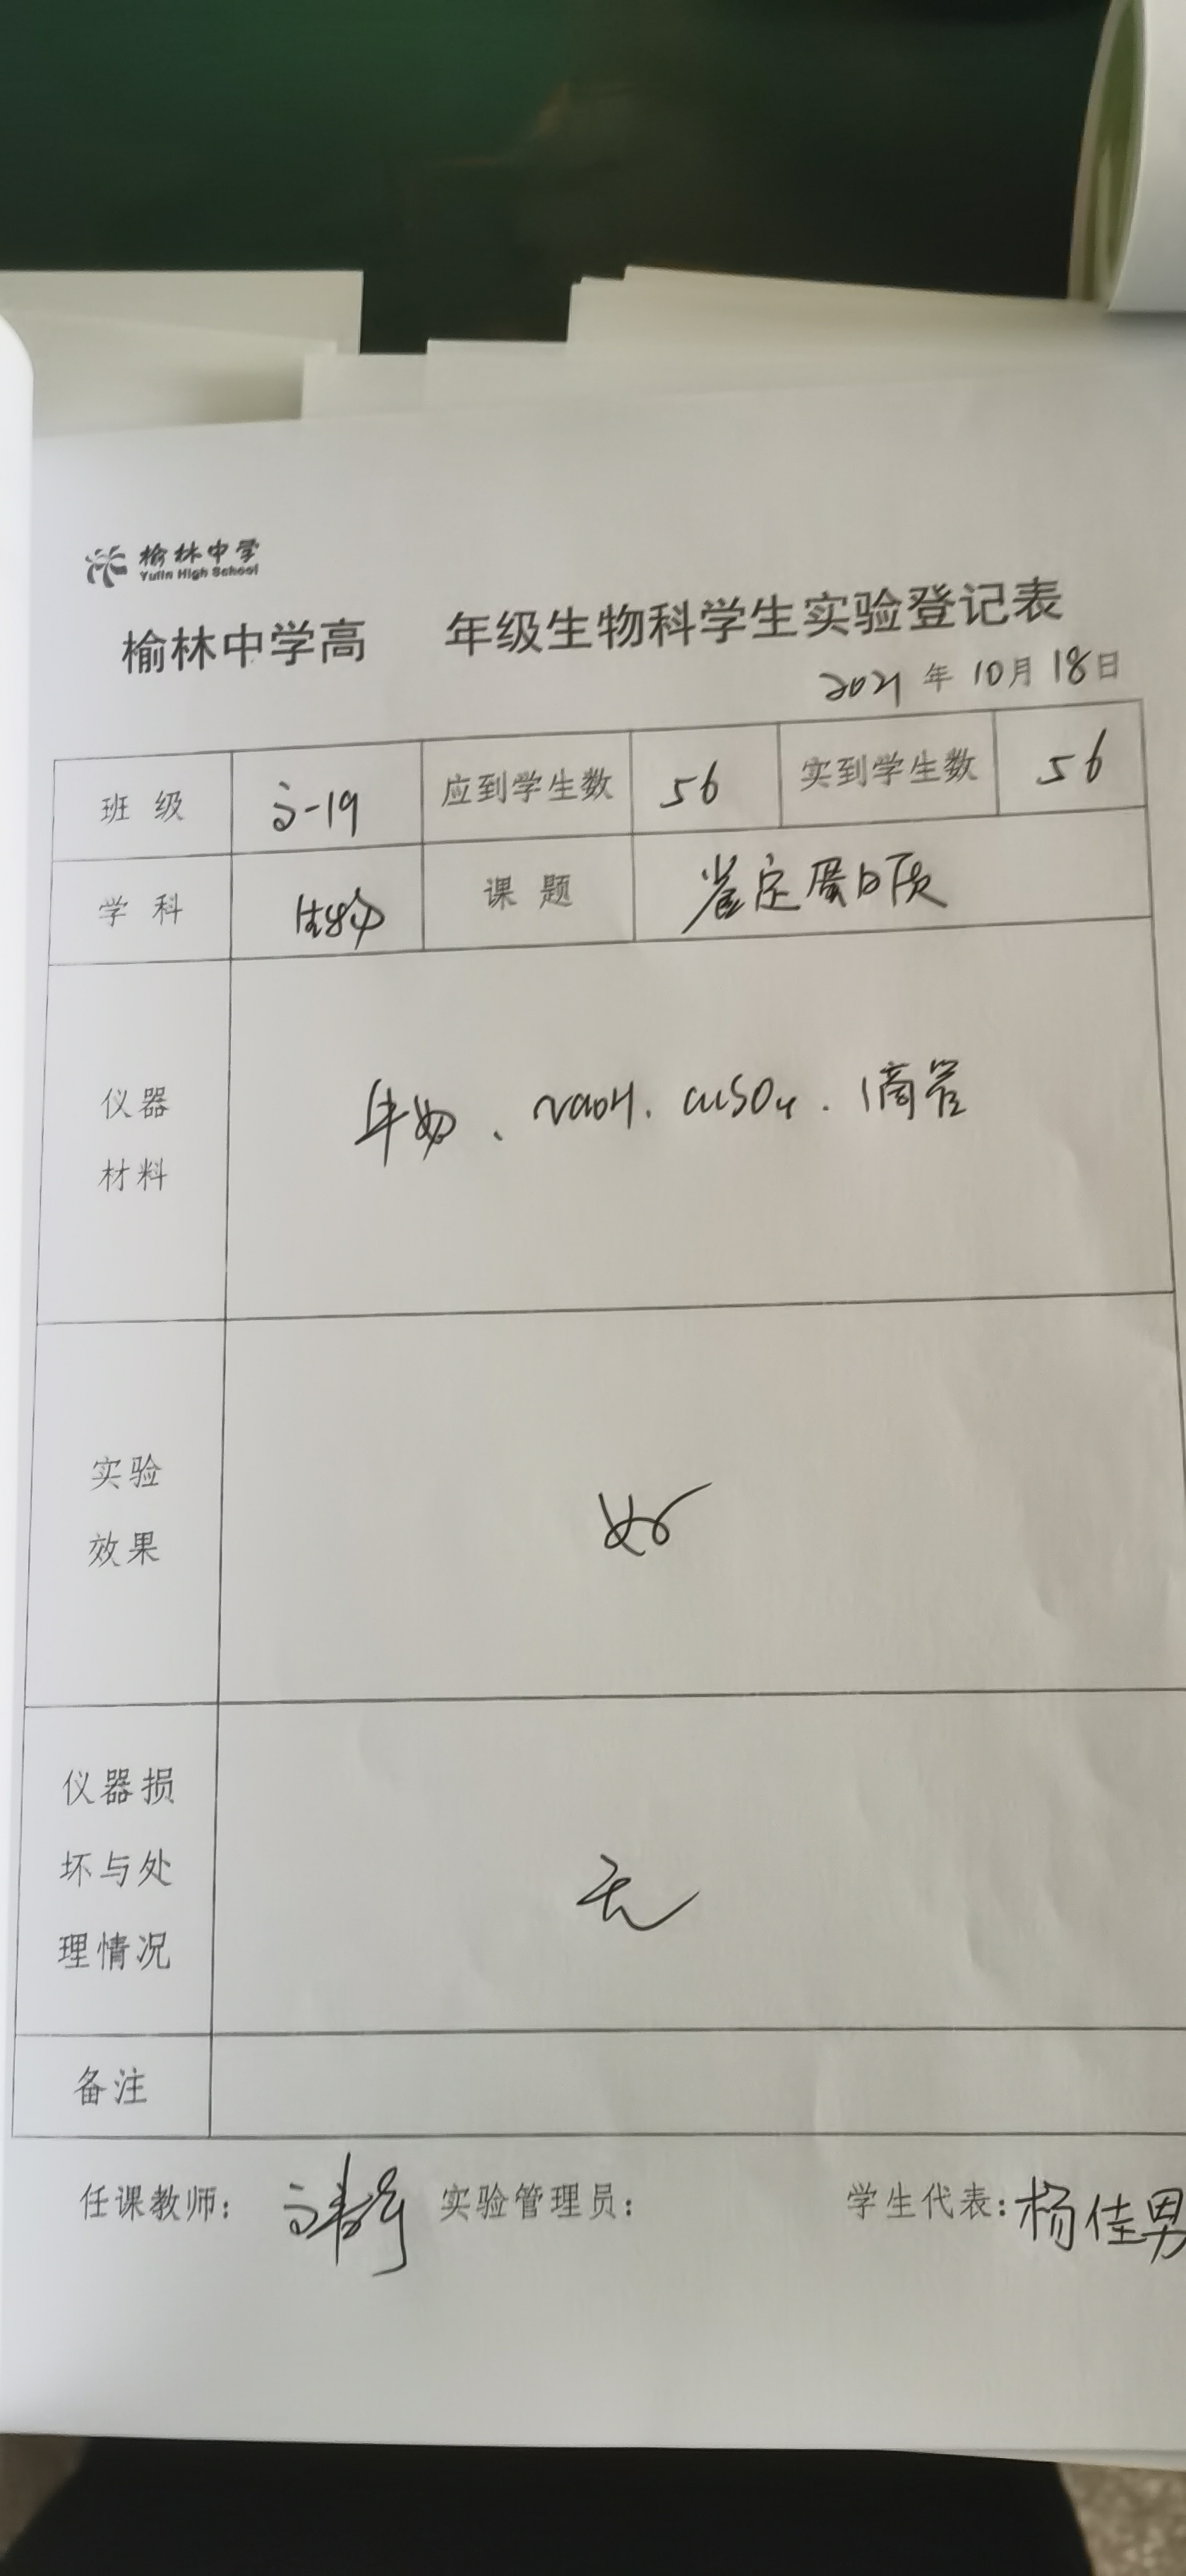 榆林中学
Yulin High School
榆林中学高 年级生物科学生实验登记表
2021年10月18日
班级 高-19 应到学生数 56 实到学生数 56
学科 生物 课题 鉴定蛋白质
仪器
材料
牛奶、NaOH、CuSO4、滴管
实验
效果
好
仪器损
坏与处
理情况
无
备注
任课教师： 实验管理员： 学生代表：杨佳男